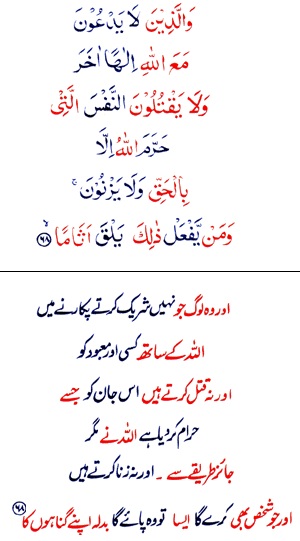 وَالَّذِيْنَ لَا يَدْعُوْنَ
مَعَ اللّٰهِ اِلٰهًا اٰخَرَ
وَلَا يَقْتُلُوْنَ النَّفْسَ الَّتِيْ
حَرَّمَ اللّٰهُ اِلَّا
بِالْحَقِّ وَلَا يَزْنُوْنَ ۚ
وَمَنْ يَّفْعَلْ ذٰلِكَ يَلْقَ اَثَامًا ۙ ﴿۶۸﴾
اور وہ لوگ جو نہیں شریک کرتے پکارنے میں
اللہ کے ساتھ کسی اور معبود کو
اور نہ قتل کرتے ہیں اس جان کو جسے
حرام کر دیا ہے اللہ نے مگر
جائز طریقے سے ۔ اور نہ زنا کرتے ہیں
اور جو شخص بھی کرے گا ایسا تو وہ پائے گا بدلہ اپنے گناہوں کا ﴿۶۸﴾